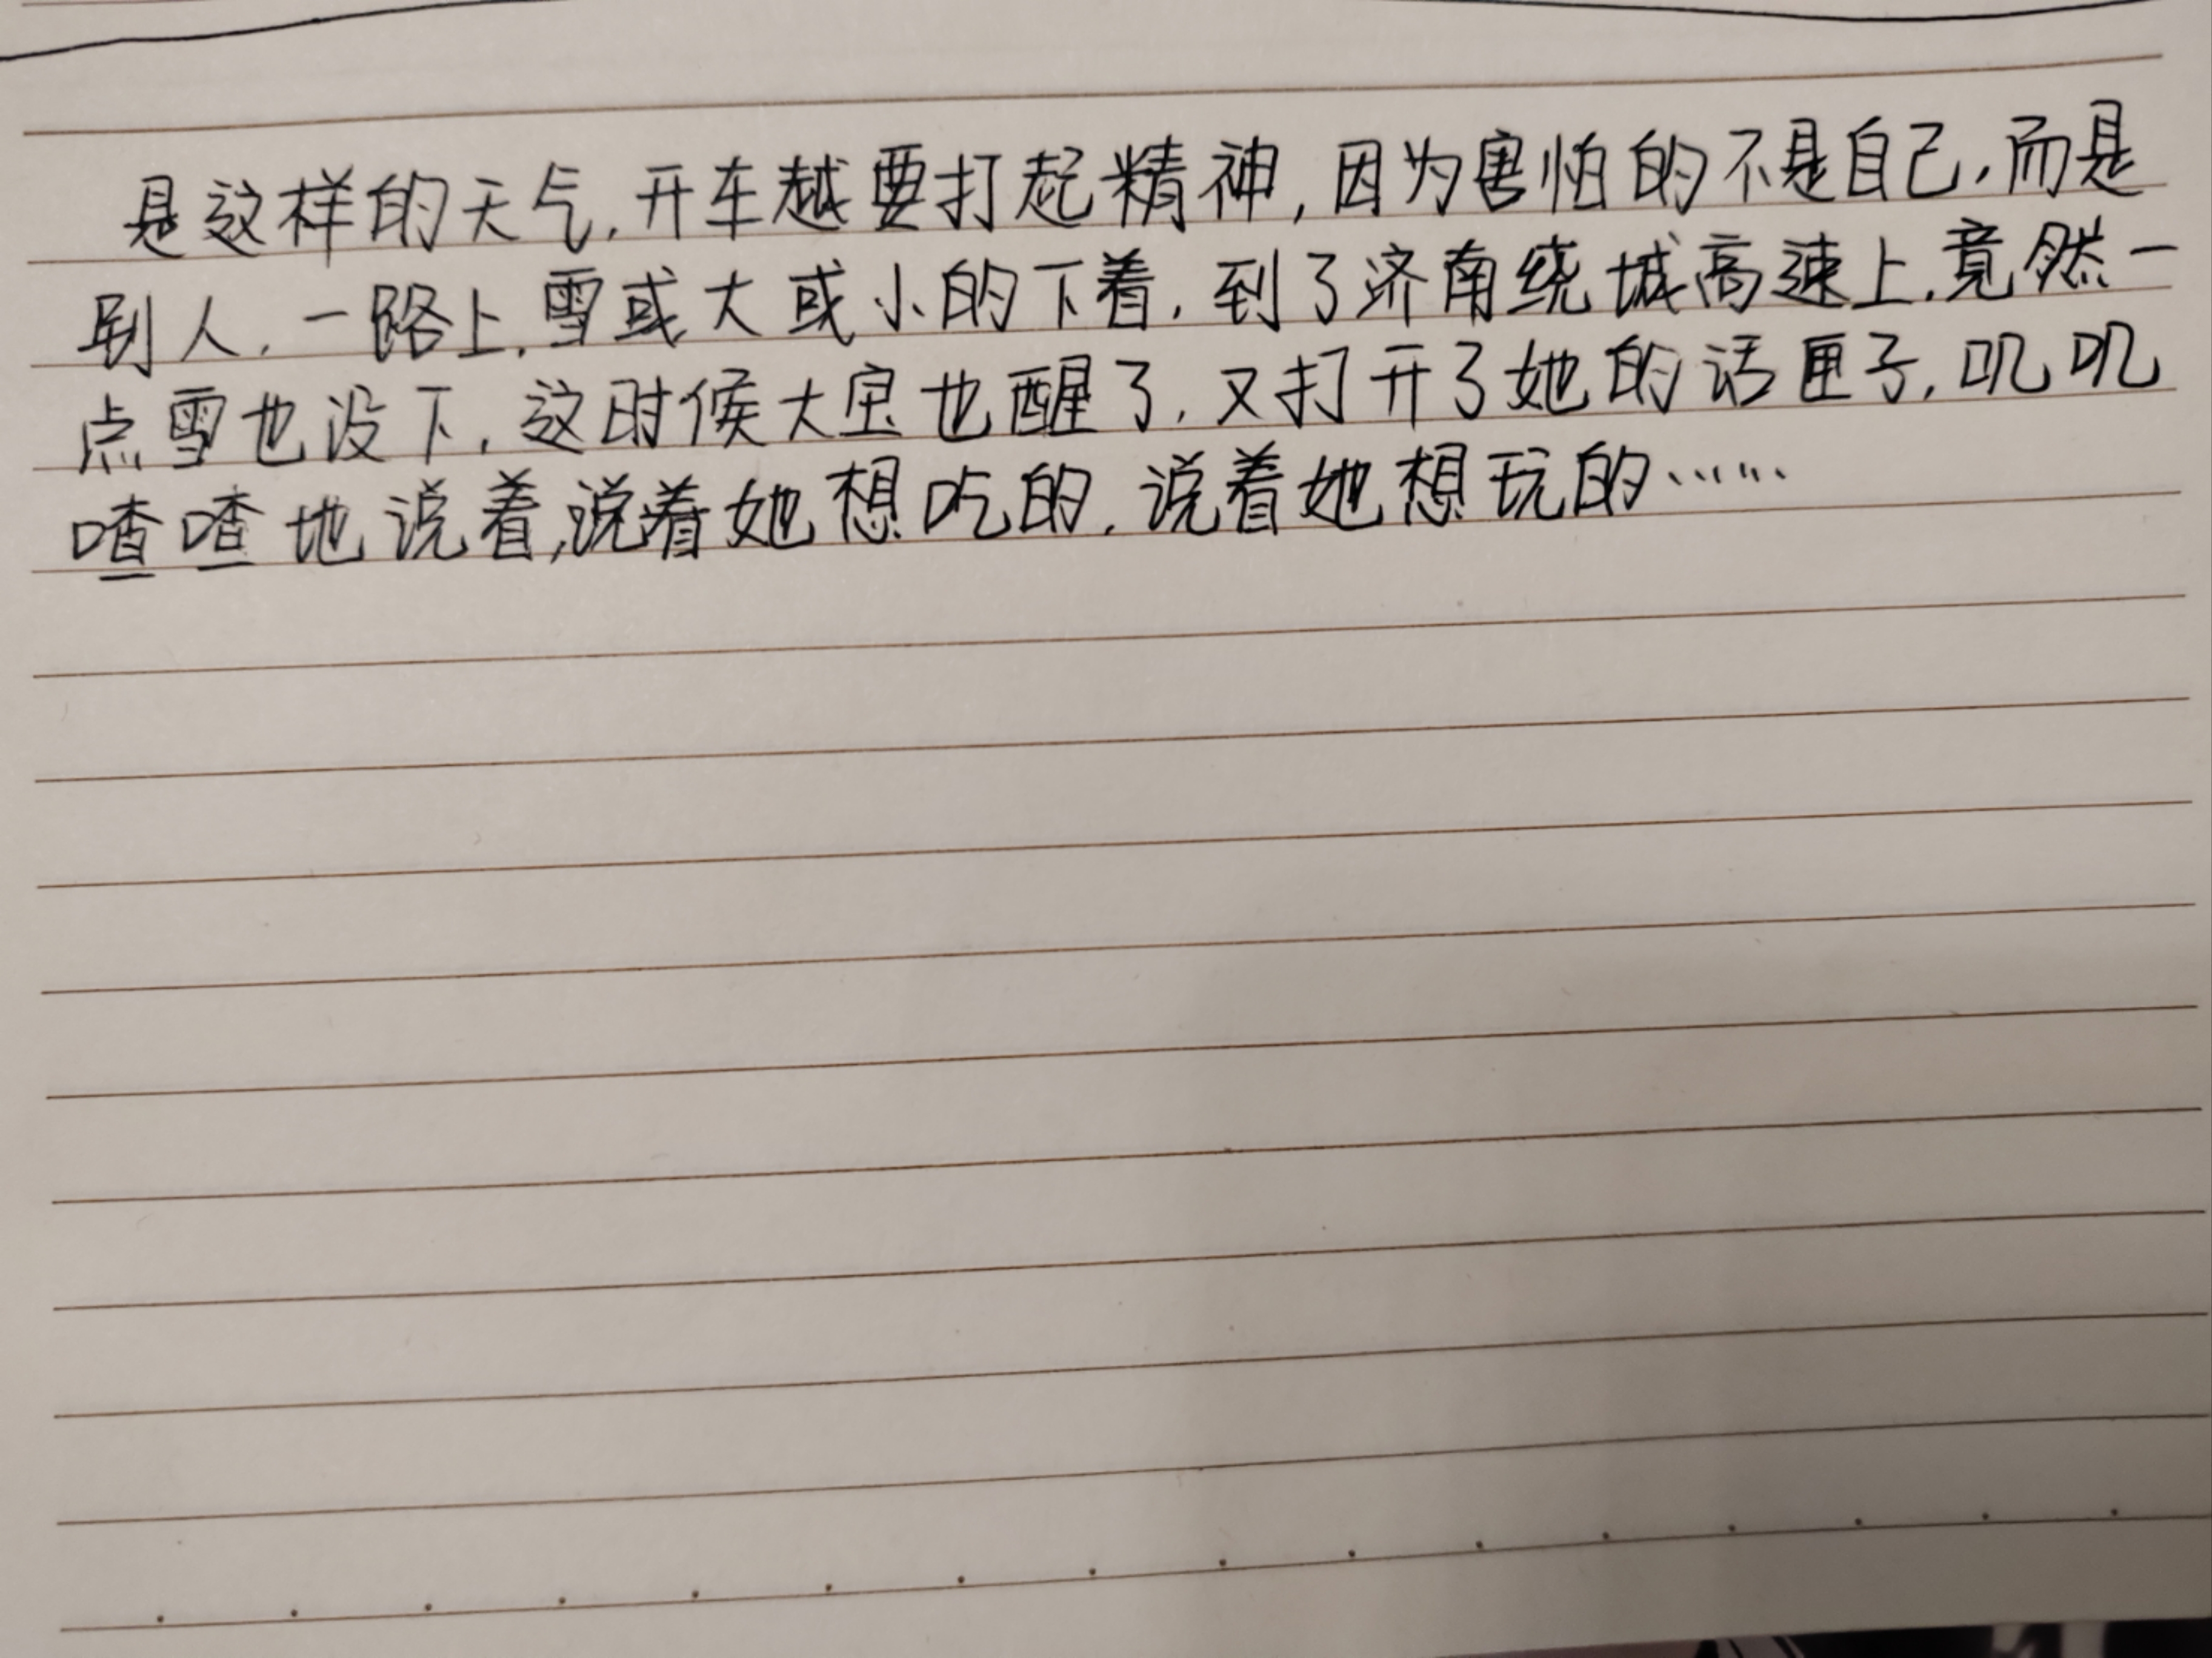 是这样的天气,开车越要打起精神,因为害怕的不是自己,而是
别人,一路上,雪或大或小的下着,到了济南绕城高速上,竟然一
点雪也没下,这时候大宝也醒了,又打开了她的话匣子,叽叽
喳喳地说着,说着她想吃的,说着她想玩的……